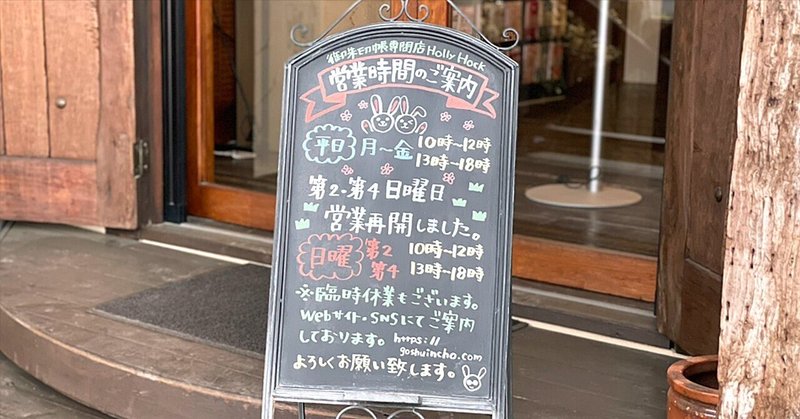 御朱印帳専門店Holly Hock
営業時間のご案内
平日 月〜金 10時〜12時
13時〜18時
第2・第4日曜日
営業再開しました。
日曜 第2 10時〜12時
第4 13時〜18時
※臨時休業もございます。
Webサイト・SNSにてご案内
しております。 https://
goshuincho.com
よろしくお願い致します。